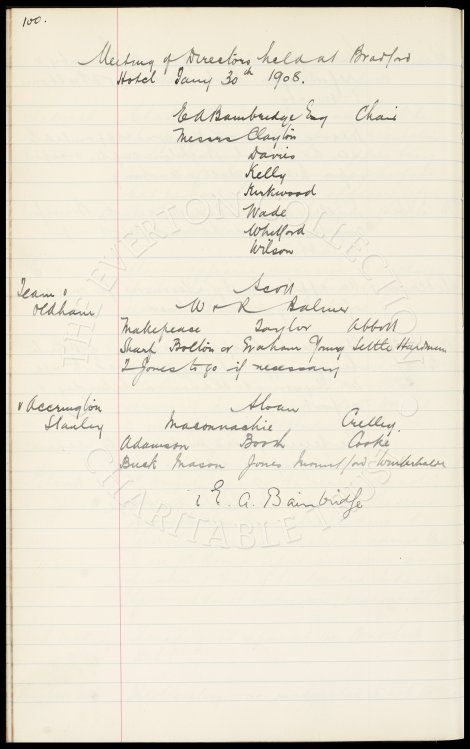 100.
Meeting of Directors held at Bradford
Hotel Jany 30th 1908.
E A Bainbridge Esq Chair
Messrs Clayton
Davies
Kelly
Kirkwood
Wade
Whitford
Wilson
Team v
Oldham
Scott
W & R Balmer
Makepeace Taylor Abbott
Sharp Bolton or Graham Young Settle Hardman
T Jones to go if necessary
v Accrington
Stanley
Sloan
Maconnachie Crelley
Adamson Booth Cooke
Buck Mason Jones Mountford Winterhalder
E. A. Bainbridge
THE EVERTON COLLECTION
CHARITABLE TRUST